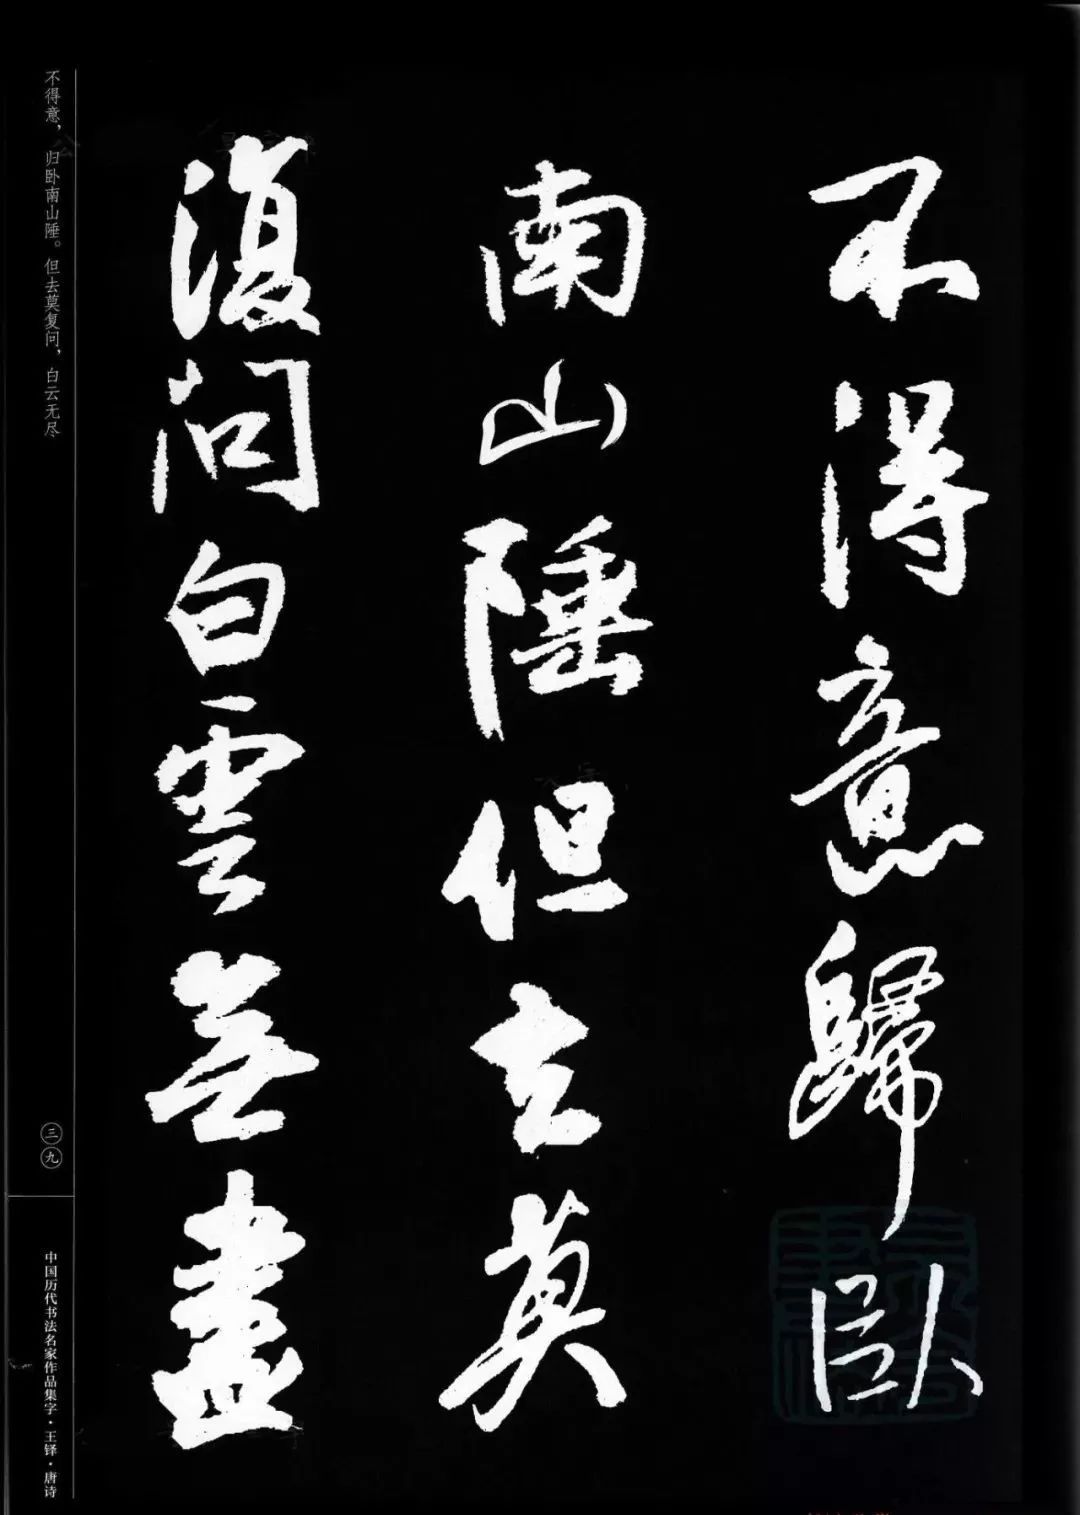 不得意歸卧
南山陲但去莫
復問白雲無盡
不得意，归卧南山陲。但去莫复问，白云无尽
三九
中国历代书法名家作品集字·王铎·唐诗